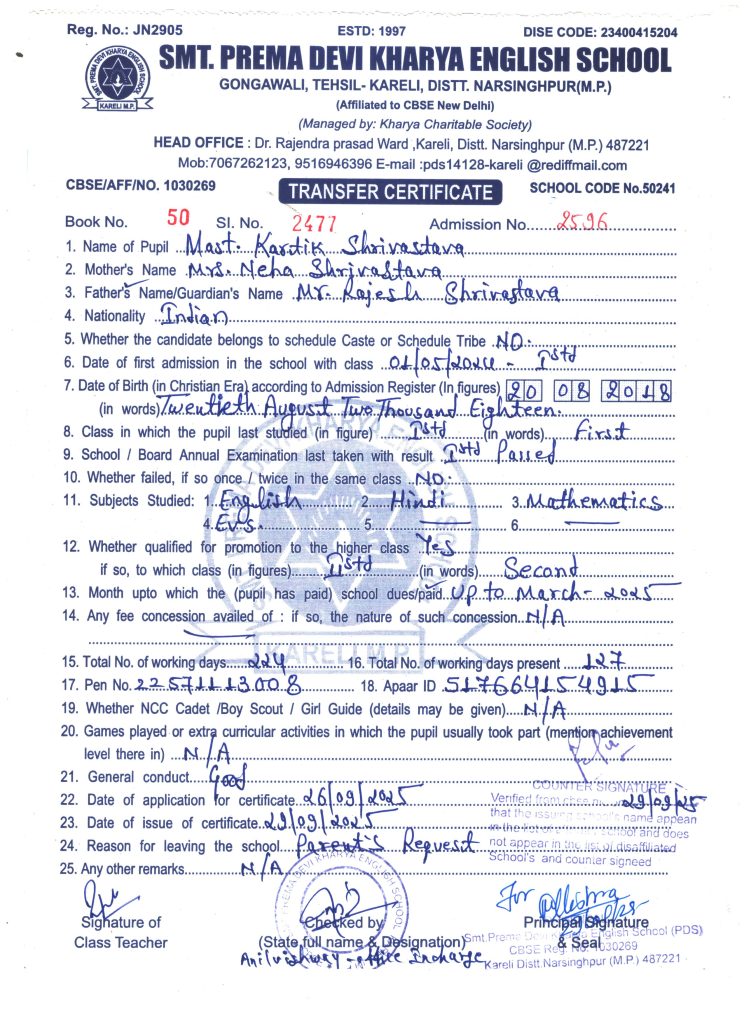 Reg. No.: JN2905 ESTD: 1997 DISE CODE: 23400415204
SMT. PREMA DEVI KHARYA ENGLISH SCHOOL
GONGAWALI, TEHSIL- KARELI, DISTT. NARSINGHPUR(M.P.)
(Affiliated to CBSE New Delhi)
(Managed by: Kharya Charitable Society)
HEAD OFFICE : Dr. Rajendra prasad Ward ,Kareli, Distt. Narsinghpur (M.P.) 487221
Mob:7067262123, 9516946396 E-mail :pds14128-kareli @rediffmail.com
CBSE/AFF/NO. 1030269 TRANSFER CERTIFICATE SCHOOL CODE No.50241
Book No. 50 Sl. No. 2477 Admission No. 2596
1. Name of Pupil Mast. Kartik Shrivastava
2. Mother's Name Mrs. Neha Shrivastava
3. Father's Name/Guardian's Name Mr. Rajesh Shrivastava
4. Nationality Indian
5. Whether the candidate belongs to schedule Caste or Schedule Tribe NO.
6. Date of first admission in the school with class 01/05/2024 - Istd
7. Date of Birth (in Christian Era) according to Admission Register (In figures) 20 08 2018
(in words) Twentieth August Two Thousand Eighteen.
8. Class in which the pupil last studied (in figure) Istd (in words) First
9. School / Board Annual Examination last taken with result Istd Passed
10. Whether failed, if so once / twice in the same class NO.
11. Subjects Studied: 1. English 2. Hindi 3. Mathematics
4. Evs. 5. — 6. —
12. Whether qualified for promotion to the higher class Yes
if so, to which class (in figures) IIstd (in words) Second
13. Month upto which the (pupil has paid) school dues/paid Up to March - 2025
14. Any fee concession availed of : if so, the nature of such concession N/A
15. Total No. of working days 224 16. Total No. of working days present 127
17. Pen No. 22571113008 18. Apaar ID 517664154915
19. Whether NCC Cadet /Boy Scout / Girl Guide (details may be given) N/A
20. Games played or extra curricular activities in which the pupil usually took part (mention achievement
level there in) N/A
21. General conduct Good
COUNTER SIGNATURE
22. Date of application for certificate 26/09/2025
Verified from cbse 29/09/25
that the issuing school's name appear
23. Date of issue of certificate 29/09/2025
in the list of school and does
24. Reason for leaving the school Parent's Request
not appear in the list of disaffiliated
School's and counter signeed
25. Any other remarks N/A
For
Signature of
Class Teacher
Checked by
(State full name & Designation)
Anil vishway - office Incharge
Principal Signature
& Seal
Smt. Prema Devi Kharya English School (PDS)
CBSE Reg. No. 1030269
Kareli Distt.Narsinghpur (M.P.) 487221
SMT. PREMA DEVI KHARYA ENGLISH SCHOOL
KARELI M.P.